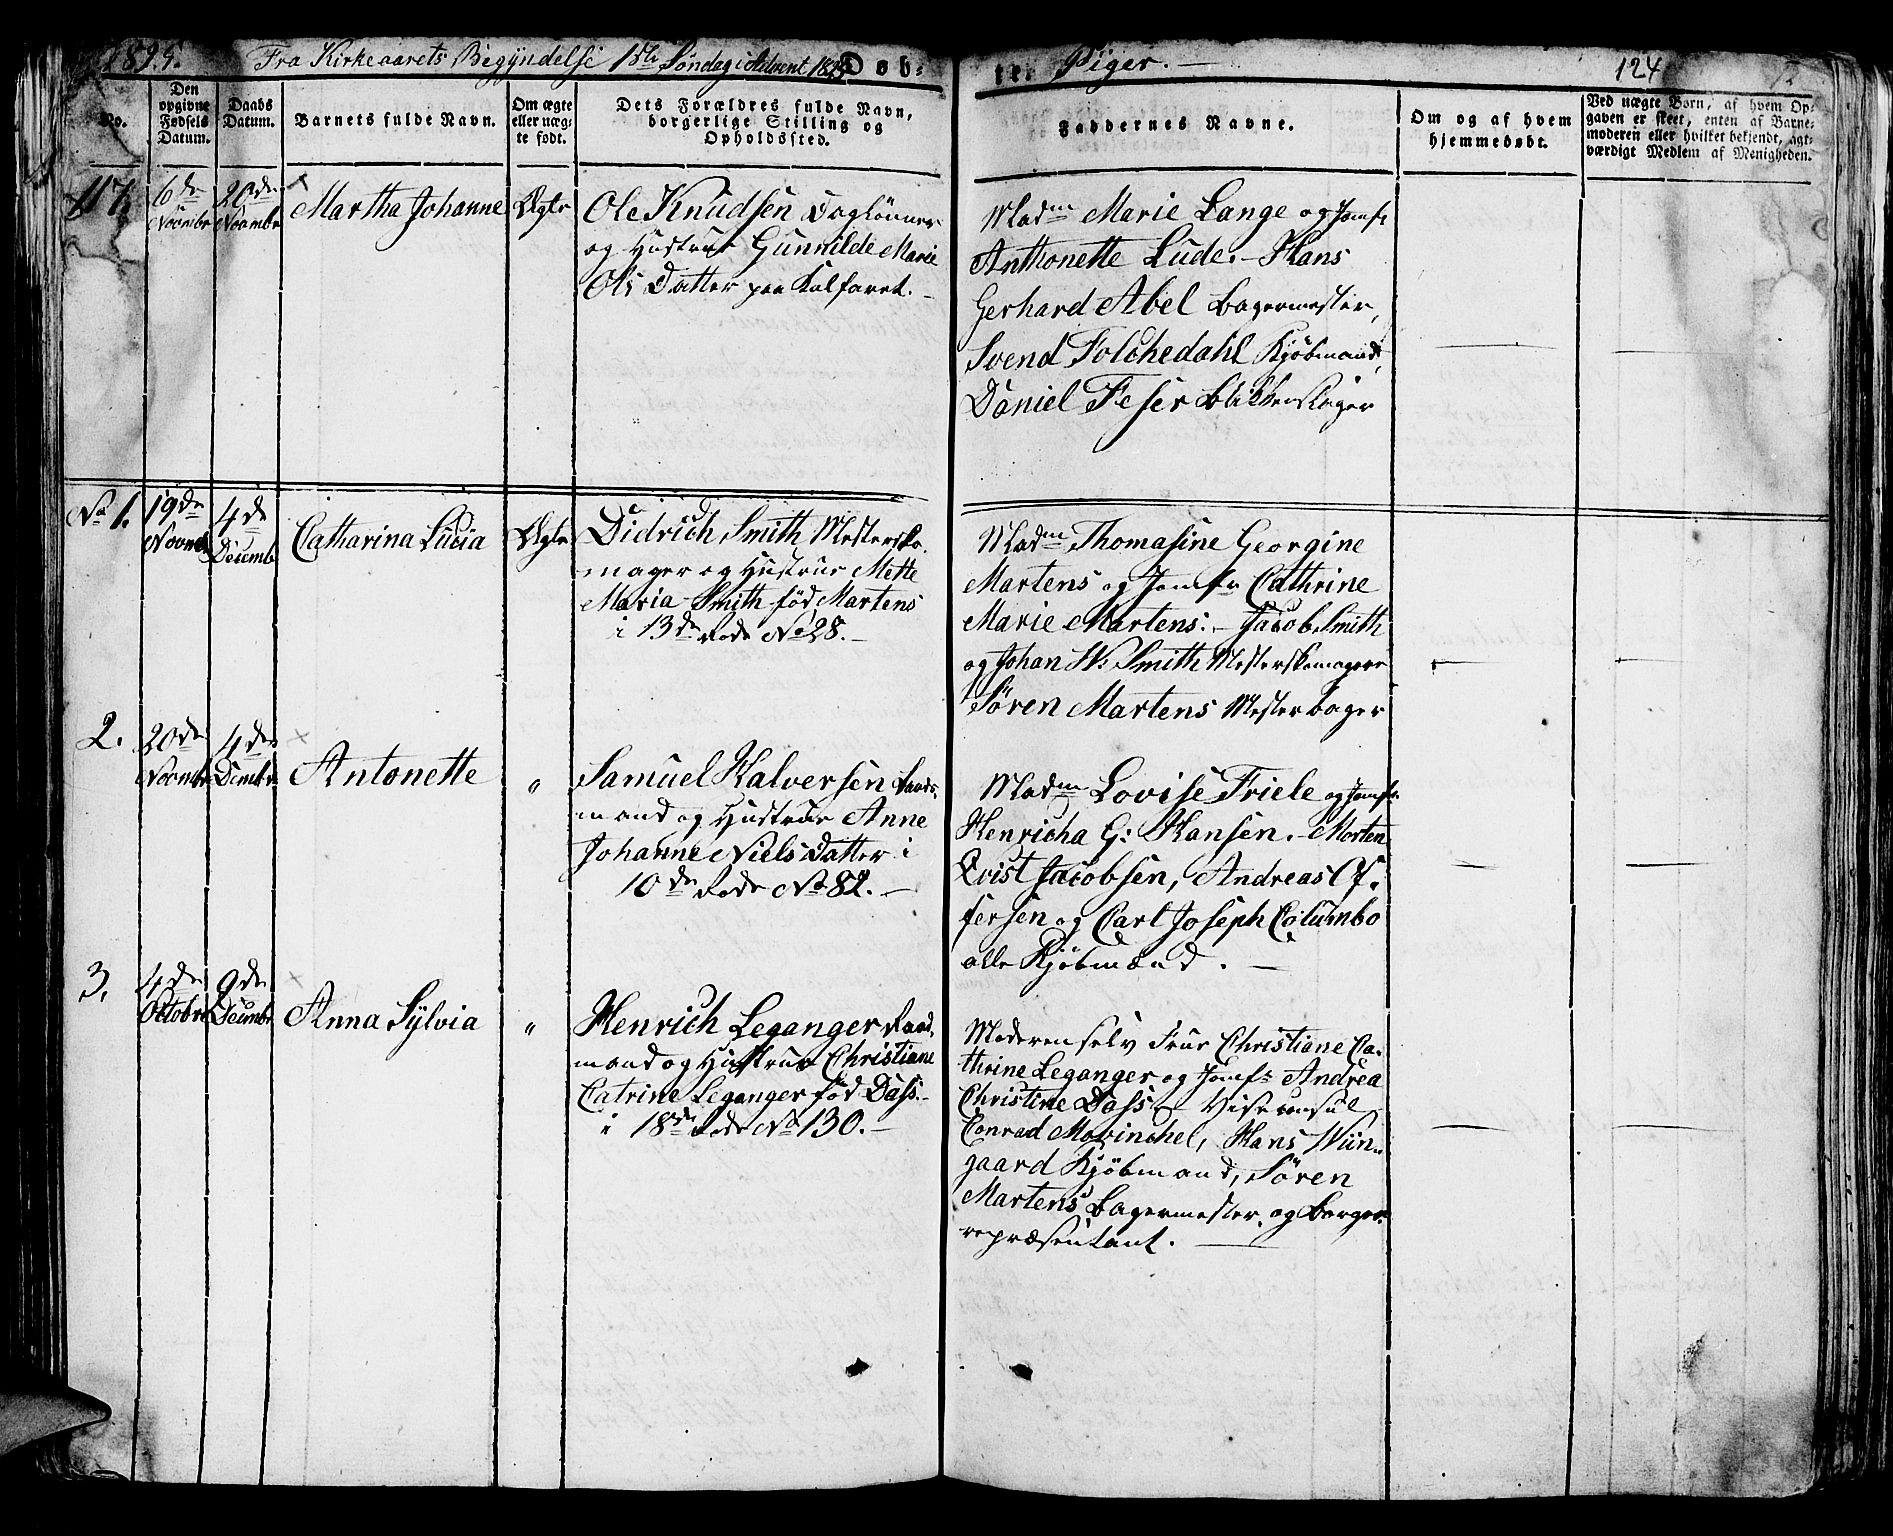 1825. Fra Kirkeaarets Begyndelse 1ste Søndag i Advent 1825 Døb-
te. Piger. — 124
No.
Den opgivne Fødsels Datum.
Daabs Datum.
Barnets fulde Navn.
Om ægte eller uægte født.
Dets Forældres fulde Navn, borgerlige Stilling og Opholdssted.
Faddernes Navne.
Om og af hvem hjemmedøbt.
Ved uægte Børn, af hvem Op-
gaven er skeet, enten af Barne-
moderen eller hvilket bekjendt, agt-
værdigt Medlem af Menigheden.
117.
6de Novmbr
20de Novmbr
Martha Johanne
Ægte
Ole Knudsen Daglønner
og Hustrue Gunnilde Marie
Ols Datter paa Kalfaret. —
Madm Marie Lange og Jomfr
Anthonette Lude. — Hans
Gerhard Abel Bagermester,
Svend Folchedahl Kjøbmand,
Daniel Feser Blikkenslager
No 1.
19de Novmbr
4de Decembr
Catharina Lucia
Ægte
Didrich Smith Mestersko-
mager og Hustrue Mette
Maria Smith fød Martens
i 13de Rode No 28. —
Madm Thomasine Georgine
Martens og Jomfr Cathrine
Marie Martens. — Jacob Smith
og Johan W: Smith Mesterskomagere
Søren Martens Mesterbager
2.
20de Novmbr
4de Dcmbr
Antonette
"
Samuel Halversen Vands-
mand og Hustrue Anne
Johanne Niels Datter i
10de Rode No 82. —
Madm Lovise Friele og Jomfr
Henricha G: Hansen. — Morten
Qvist Jacobsen, Andreas Of-
fersen og Carl Joseph Columbo
alle Kjøbmænd. —
3.
4de Octobr
9de Decmbr
Anna Sylvia
"
Henrich Leganger Raad-
mand og Hustrue Christiane
Catrine Leganger fød Dass. —
i 18de Rode No 130. —
Moderen selv Frue Christiane Ca-
thrine Leganger og Jomfr Andrea
Christine Dass — Viseconsul
Conrad Mowinchel, Hans Wiin-
gaard Kjøbmand, Søren
Martens Bagermester og Borger-
repræsentant. —